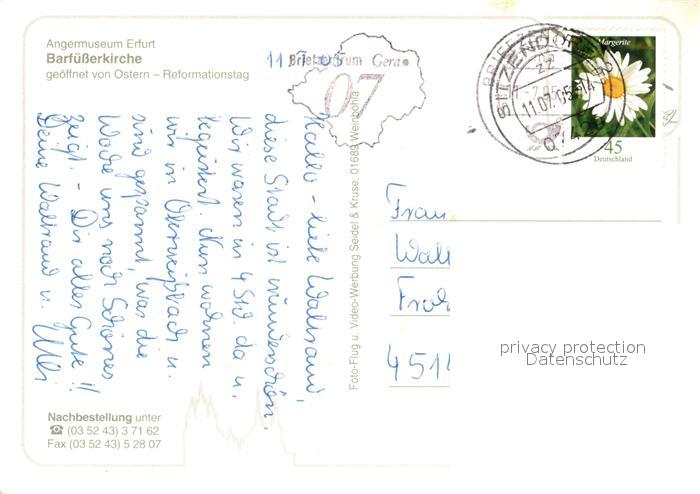 Angermuseum Erfurt
Barfüßerkirche
geöffnet von Ostern – Reformationstag
Hallo - liebe Waltraud,
diese Stadt ist wunderschön.
Wir waren in 4 Std. da u.
begeistert. Nun wohnen
wir in Oberweißbach u.
sind gespannt, was die
Woche uns noch Schönes
zeigt. - Dir alles Gute!!
Deine Waltraud u. Ulli
Nachbestellung unter
☎ (03 52 43) 3 71 62
Fax (03 52 43) 5 28 07
Foto-Flug u. Video-Werbung Seidel & Kruse. 01689 Weinböhla
Briefzentrum Gera
07
SITZENDORF
11.07.05
Margerite
45
Deutschland
Frau
Walt
Froh
451
privacy protection
Datenschutz